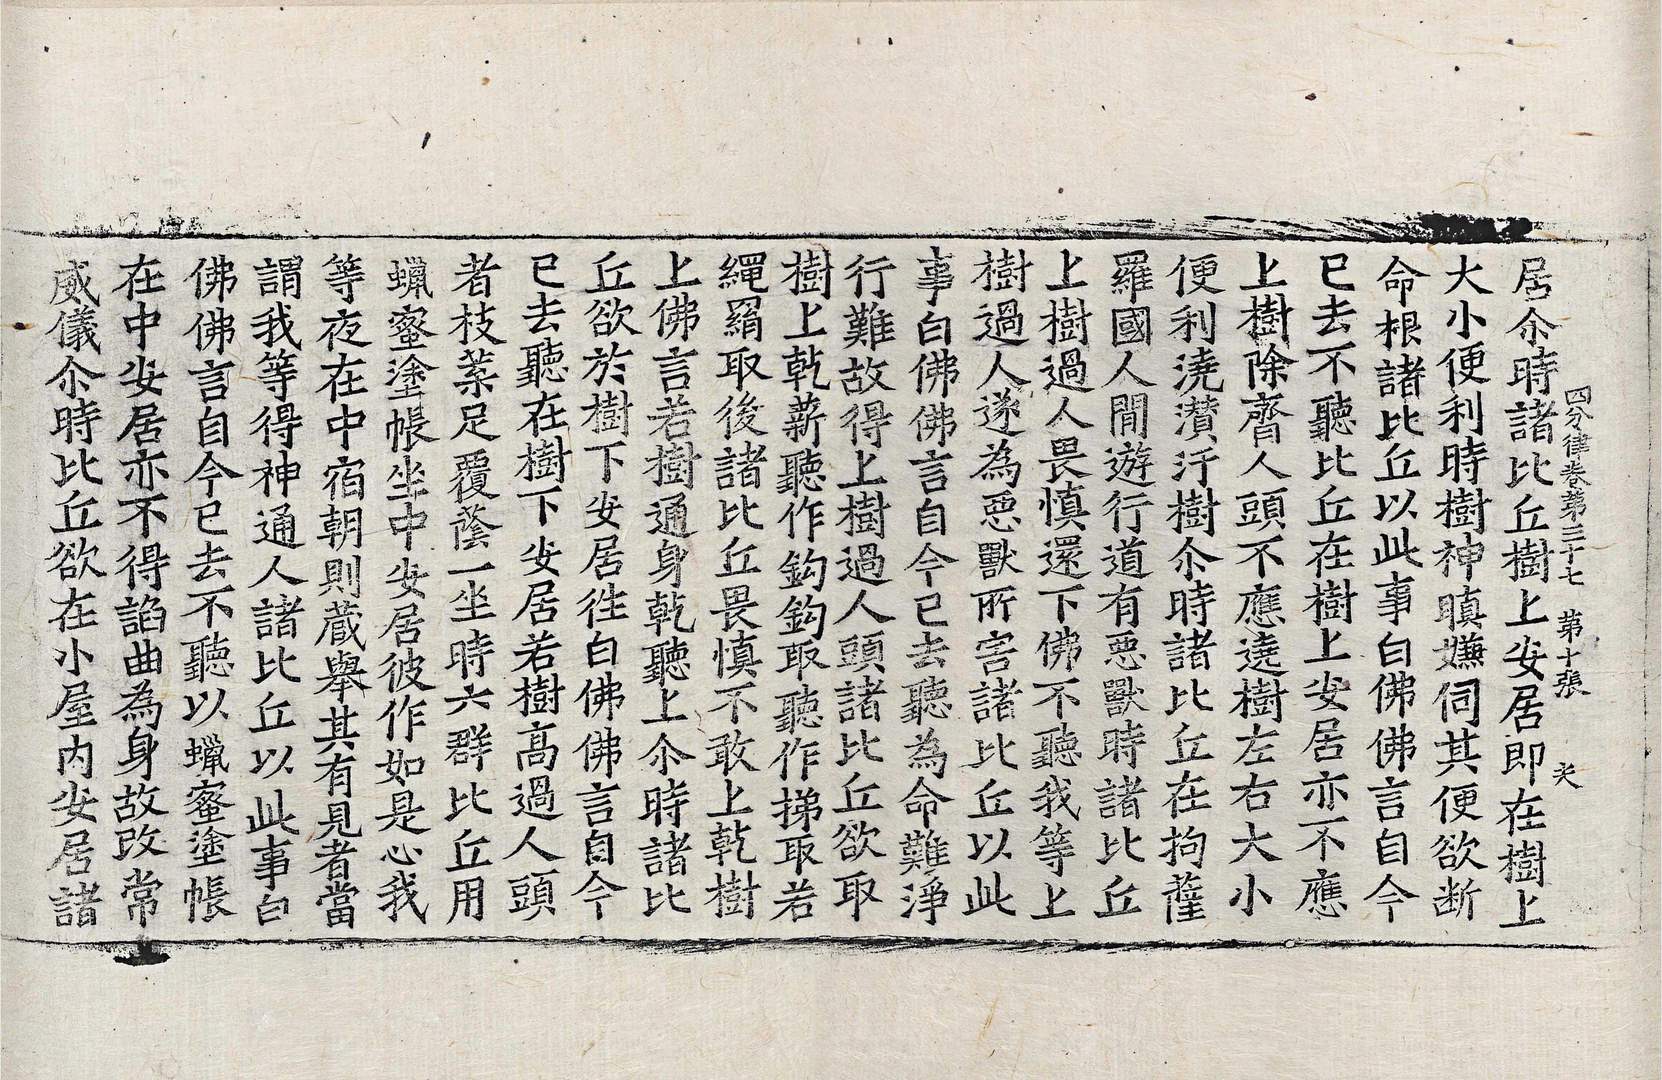 四分律卷第三十七　第十張　夫
居尒時諸比丘樹上安居即在樹上
大小便利時樹神瞋嫌伺其便欲断
命根諸比丘以此事白佛佛言自今
已去不聽比丘在樹上安居亦不應
上樹除齊人頭不應遶樹左右大小
便利澆灒汙樹尒時諸比丘在拘薩
羅國人間遊行道有惡獸時諸比丘
上樹過人畏慎還下佛不聽我等上
樹過人遂為惡獸所害諸比丘以此
事白佛佛言自今已去聽為命難淨
行難故得上樹過人頭諸比丘欲取
樹上乾薪聽作鈎鈎取聽作梯取若
繩羂取後諸比丘畏慎不敢上乾樹
上佛言若樹通身乾聽上尒時諸比
丘欲於樹下安居徃白佛佛言自今
已去聽在樹下安居若樹高過人頭
者枝葉足覆蔭一坐時六群比丘用
蠟蜜塗帳坐中安居彼作如是心我
等夜在中宿朝則藏舉其有見者當
謂我等得神通人諸比丘以此事白
佛佛言自今已去不聽以蠟蜜塗帳
在中安居亦不得諂曲為身故改常
威儀尒時比丘欲在小屋内安居諸